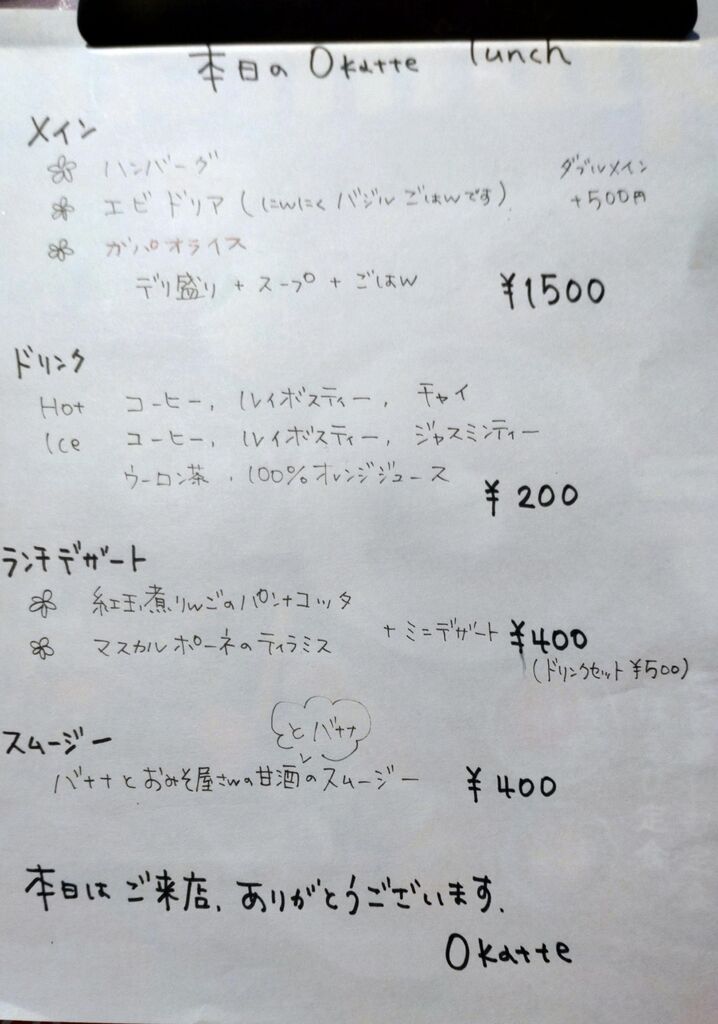 本日の Okatte lunch
メイン
ハンバーグ
ダブルメイン
エビ ドリア (にんにく バジル ごはんです)
+500円
ガパオライス
デリ盛り + スープ + ごはん ¥1500
ドリンク
Hot コーヒー, ルイボスティー, チャイ
Ice コーヒー, ルイボスティー, ジャスミンティー
ウーロン茶, 100%オレンジジュース
¥200
ランチデザート
紅玉煮りんごのパンナコッタ
マスカルポーネのティラミス
+ ミニデザート ¥400
(ドリンクセット ¥500)
スムージー
とバナナ
バナナとおみそ屋さんの甘酒のスムージー ¥400
本日はご来店、ありがとうございます。
Okatte